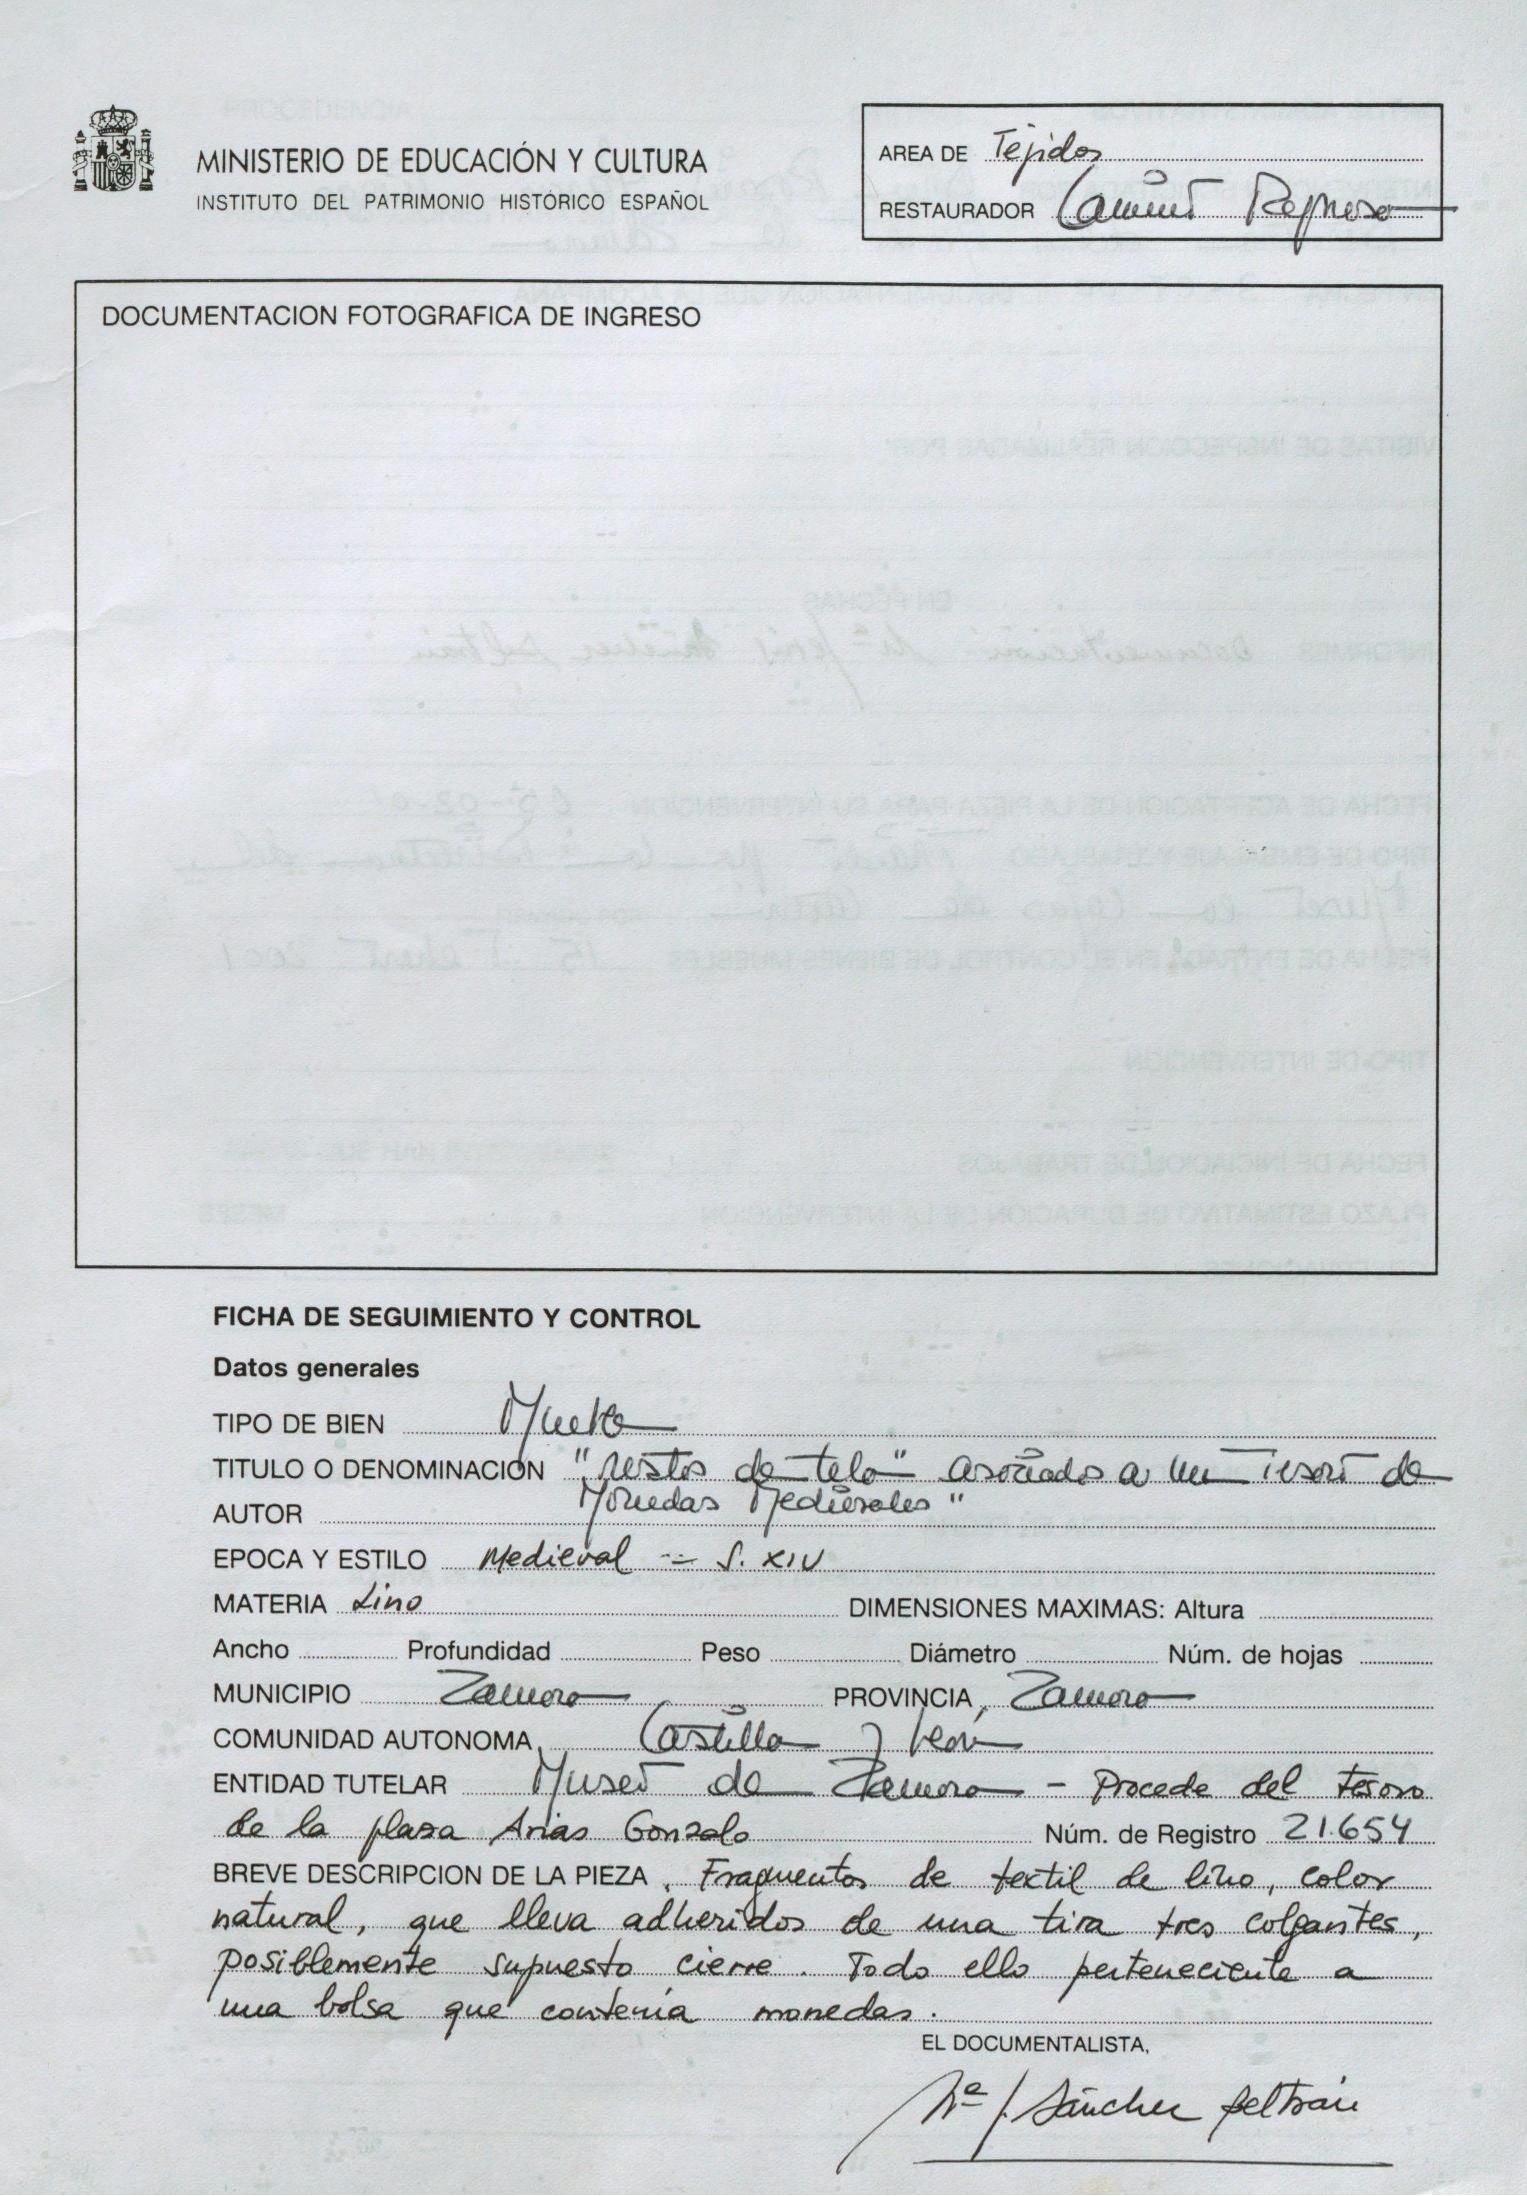 MINISTERIO DE EDUCACIÓN Y CULTURA
INSTITUTO DEL PATRIMONIO HISTÓRICO ESPAÑOL
AREA DE Tejidos
RESTAURADOR
DOCUMENTACION FOTOGRAFICA DE INGRESO
FICHA DE SEGUIMIENTO Y CONTROL
Datos generales
TIPO DE BIEN Mueble
TITULO O DENOMINACION "restos de tela" asociados a un Tesoro de
Monedas Medievales"
AUTOR
EPOCA Y ESTILO Medieval - S. XIV
MATERIA Lino DIMENSIONES MAXIMAS: Altura
Ancho Profundidad Peso Diámetro Núm. de hojas
MUNICIPIO Zamora PROVINCIA, Zamora
COMUNIDAD AUTONOMA, Castilla y León
ENTIDAD TUTELAR Museo de Zamora - Procede del tesoro
de la plaza Arias Gonzalo Núm. de Registro 21.654
BREVE DESCRIPCION DE LA PIEZA, Fragmentos de textil de lino, color
natural, que lleva adheridos de una tira tres colgantes,
posiblemente supuesto cierre. Todo ello perteneciente a
una bolsa que contenía monedas.
EL DOCUMENTALISTA,
Mª J. Sánchez Beltrán